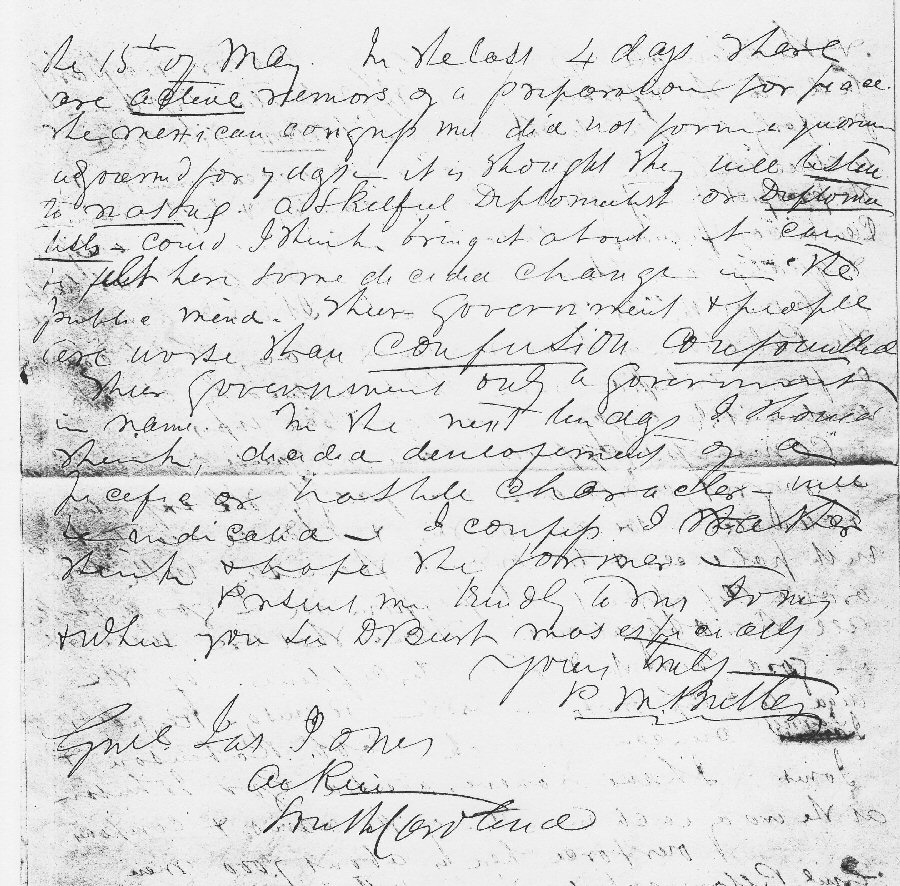 the 15th of May. In the last 4 days there
are active rumors of a preparation for peace.
the mexican congress met did not form a quorum
adjourned for 7 days – it is thought they will listen
to nothing. a Skilful Diplomatist or Diploma
tists – could I think bring it about. it can
be felt here some decided change in the
public mind. Their government & people
are worse than confusion confounded
Their government only a government
in name. In the next ten days I should
think, decided developement of a
pacific or hostile character – will
be indicated – I confess I rather
think & hope the former –
Present me kindly to Mrs Jones
& when you see D Burt most especially
yours truly
P M Butler
Genl Jas Jones
Aiken
South Carolina